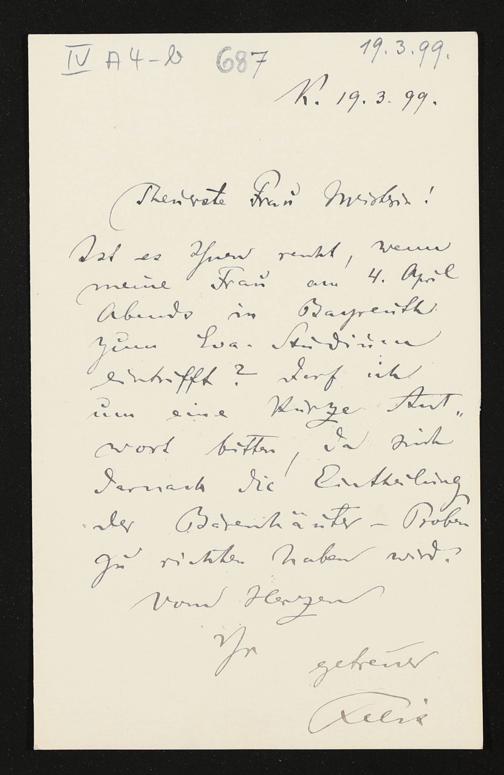 IV A 4-b 687 19.3.99.
K. 19.3.99.
Theuerste Frau Meisterin!
Ist es Ihnen recht, wenn
meine Frau am 4. April
Abends in Bayreuth
zum Eva-Studium
eintrifft? Darf ich
um eine kurze Ant„
wort bitten, da sich
darnach die Eintheilung
der Bärenhäuter-Proben
zu richten haben wird.
Von Herzen
Ihr getreuer
Felix